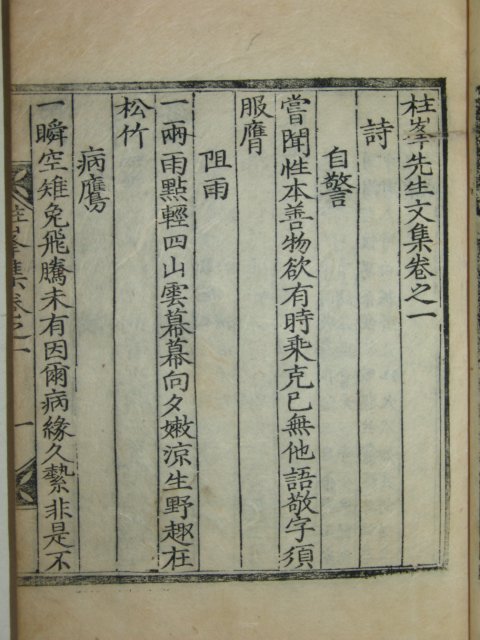 柱峯先生文集卷之一
詩
自警
嘗聞性本善物欲有時乘克已無他語敬字須
服膺
阻雨
一兩雨點輕四山雲幕幕向夕嫩涼生野趣在
松竹
病鷹
一瞬空雉兔飛騰未有因爾病緣久縶非是不
柱峯集卷之一
一